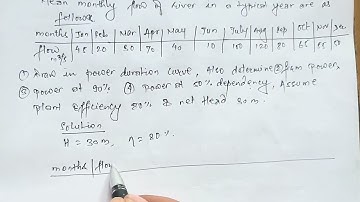 Mean monthly flow of river in a typical year are as
follows
months Jan Feb Mar Apr May Jun July Aug Sep Oct Nov Dec
flow m³/s 20 70 10 120 80
① Draw in power duration curve, Also determine ② firm power,
③ power at 90% ④ power at 50% dependency, Assume
plant efficiency 80% & net Head 30m.
Solution
H = 30m, η = 80%.
months | flow